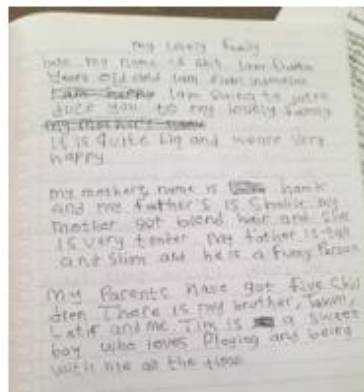 my lovely family
my name is I am
years old and I am from
I am happy I am going to intro
duce you to my lovely family
my mother's name
it is quite big and we are very
happy
my mothers name is hank
and me father's is my
mother got blend hair and she
is very tender my father is tall
and slim and he is a funny Person
My Parents have got five chil
dren There is my bruther,
Latif and me. Tim is a sweet
boy who loves Playing and being
with me all the time